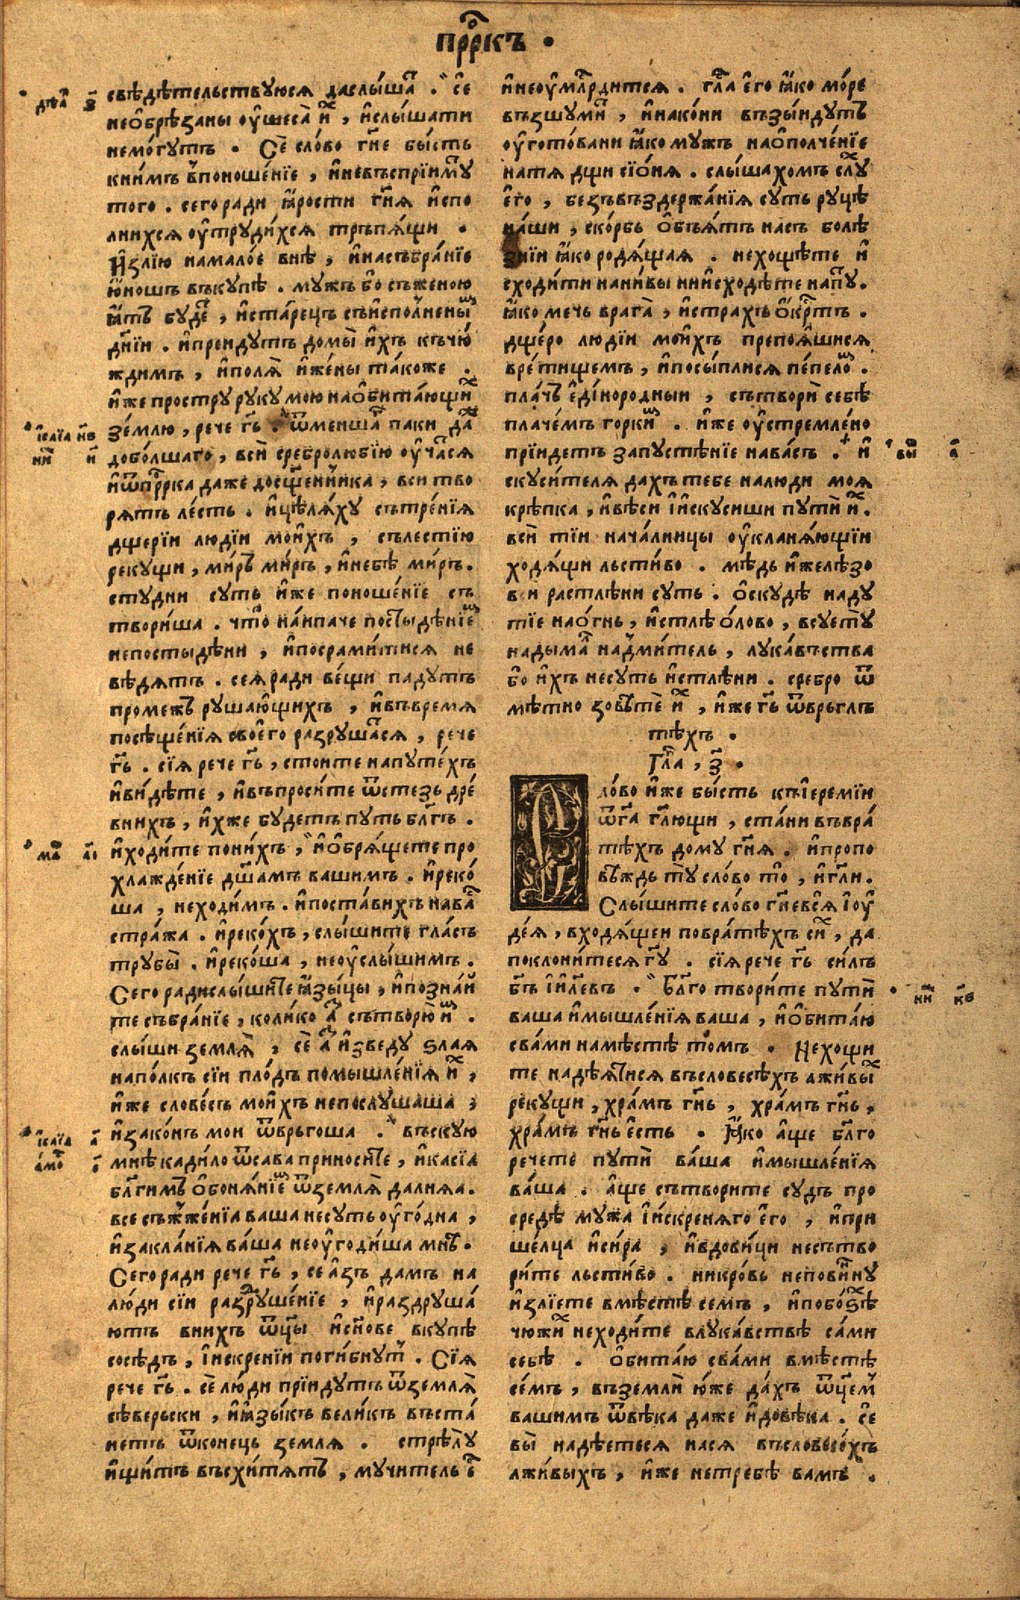 прⷪ҇ркъ •
свѣдѣтельствуюся даслы́шаⷮ . се
необрѣзаны оушеса̀ иⷯ , ислы́шати
немо́гутъ . Сѐ сло́во гн҃е бы́сть
книмъ впоноше́нїе , иневъспрїимⷹ
того . сегоради ꙗрости гн҃ѧ испо
лнихсѧ оутруди́хсѧ тръпѧ́щи .
Излїю намало́е внѣ , инасъбра́нїе
ю́ношъ въкупѣ . мужъ бо съженою
ꙗтъ буде , иста́рецъ съиспо́лнены
дн҃їи . ипреидутъ домы̀ ихъ къчю́
ждимъ , иполѧ̀ иже́ны та́коже .
иже простру руку мою наобита́ющиⷯ
зе́млю , рече гь҃ . ѿменшаⷢ паки даⷤ
добо́лшаго , вси сребролюбїю оуча́сѧ
иѿпрⷪ҇рка даже досщ҃енника , вси тво
рѧтъ ле́сть . ицѣлѧ́ху сътре́нїѧ
дщерїи люді́и мои́хъ , сълестїю
рекущи , ми́ръ ми́ръ , инебѣ ми́ръ .
студни суть иже поноше́нїе съ
твори́ша . что̀ на́ипаче постыде́нїеⷨ
непостыде́ни , ипосрами́тисѧ не
вѣдѧтъ . сеѧради ве́щи падутъ
промежъ рушаю́щихъ , ивъвремѧ
посѣще́нїѧ своего̀ разруша́сѧ , рече
гь҃ . сїѧ рече гь҃ , стоите напуте́хъ
иви́дѣте , ивъпроси́те ѿстезь дре́
внихъ , ихже будетъ путь бл҃гъ .
иходи́те пони́хъ , иобрѧ́щете про
хлажде́нїе дш҃амъ вашимъ . иреко́
ша , неходи́мъ . ипоста́вихъ наваⷭ
стра́жа . иреко́хъ , слы́шите гла́съ
трубы̀ . иреко́ша , неоуслы́шимъ .
Сего ради слы́шите ꙗзы́цы , ипозна́й
те събра́нїе , коли́ко аⷥ сътворю̀ иⷨ .
слы́ши землѧ̀ , сѐ аⷥ изведу ѕлаѧ
напо́лкъ сїи пло́дъ помышле́нїѧ иⷯ ,
иже слове́съ мои́хъ непослушаша ,
изако́нъ мои ѿвръгоша . въскую
мнѣ кади́ло ѿсава приносите , икасїѧ
бл҃гимъ обонѧ́нїеⷨ ѿземлѧ̀ далнѧѧ .
все съжже́нїѧ ваша несуть оуго́дна ,
изакла́нїѧ ва́ша неоугоди́ша мнѣ .
Сего ради рече гь҃ , се а́зъ дамъ на
лю́ди сїи раздруше́нїе , ираздруша́
ютъ внихъ ѿц҃ы исн҃ове вкупѣ
сосѣдъ , іискренїи поги́бнутъ . Сїѧ
рече гь҃ . сѐ лю́ди прїидутъ ѿземлѧ̀
сѣверьски , иꙗзы́къ вели́къ въста́
нетъ ѿконець землѧ . стрѣлу
ищи́тъ въсхи́тѧтъ , мучитель еⷭ
инеоумл҃рдитсѧ . гла҃ его̀ ꙗко мо́ре
въсшуми́ , инако́ни възыидутъ
оугото́вани ꙗко мужъ наополче́нїе
натѧ дщи сїо́нѧ . слы́шахомъ слⷹ
его̀ , безъвъздержа́нїѧ суть руцѣ
на́ши , ско́рбь обьѧ́тъ насъ болѣ
знїи ꙗко родѧ́щаѧ . нехощѣте и
сходи́ти нани́вы ниисходѣ́те напⷹ .
ꙗко мечь врага̀ , истрахъ окрⷭ҇тъ .
дще́ро людїи мои́хъ препоѧ́шисѧ
вре́тищемъ , ипосы́плисѧ пе́пелоⷨ .
пла́чь еди́нородныи , сътворѝ себѣ
плаче́мъ горкиⷨ . иже оустремле́но
прїидетъ запустѣ́нїе нава́съ . и
скуси́телѧ дахъ тебе налюди моѧ
крѣ́пка , ивѣси іискусиши пути̇ иⷯ .
вси тїи нача́лницы оукланѧ́ющїи
ходѧ́щи льсти́во . мѣдь ижелѣзо
вси растлѣни суть . оскудѣ наду
тїе наогнь , истлѣ о́лово , всуе́ту
надымаⷮ надми́тель , лука́въства
бо ихъ несуть истлѣ́ни . сребро ѿ
мѣтно зовѣ́тѐ иⷯ , иже гь҃ ѿвръглъ
тѣхъ .
Гла҃ , з҃ .
Сло́во иже бы́сть къіеремїи
ѿга҃ гл҃ющи , ста́ни въвра́
тѣхъ дому гн҃ѧ . ипропо
вѣ́ждь ту сло́во то̀ , игл҃и .
Слы́шите сло́во гн҃е всѧ̀ іоу
де́ѧ , входѧ́щеи повра́тѣхъ сиⷯ , да
поклони́тесѧ гу҃ . сїѧ рече гь҃ силъ
бъ҃ іи҃левъ . Бл҃го твори́те пути̇
ваша имышле́нїѧ ваша , иобита́ю
свами намѣ́стѣ томъ . Нехощи
те надѣ́ꙗтисѧ въсловесѣ́хъ лжи́выⷯ
рекущи , хра́мъ гн҃ь , хра́мъ гн҃ь ,
хра́мъ гн҃ь есть . Ꙗко аще бл҃го
речете пути̇ ва́ша имышле́нїѧ
ва́ша . аще сътворите судъ про
средѣ мужа іискренѧго его̀ , ипри
ше́лца иси́ра , ивдови́ци несътво
ри́те льсти́во . никро́вь непови́нну
излїете вмѣстѣ семъ , ипобоѕѣⷯ
чюжиⷯ неходи́те влука́вствѣ са́ми
себѣ . Обита́ю свами вмѣстѣ
се́мъ , въземли̇ ю́же да́хъ ѿцеⷨ
вашимъ ѿвѣ́ка даже идовѣ́ка . се
вы̀ надѣетесѧ насѧ въсловесехъ
лжи́выхъ , иже нетребѣ вамъ .
дѣѧⷩ з҃
ісаїа нв
ма҃ аі
ісаїа а҃
амоⷭ е҃